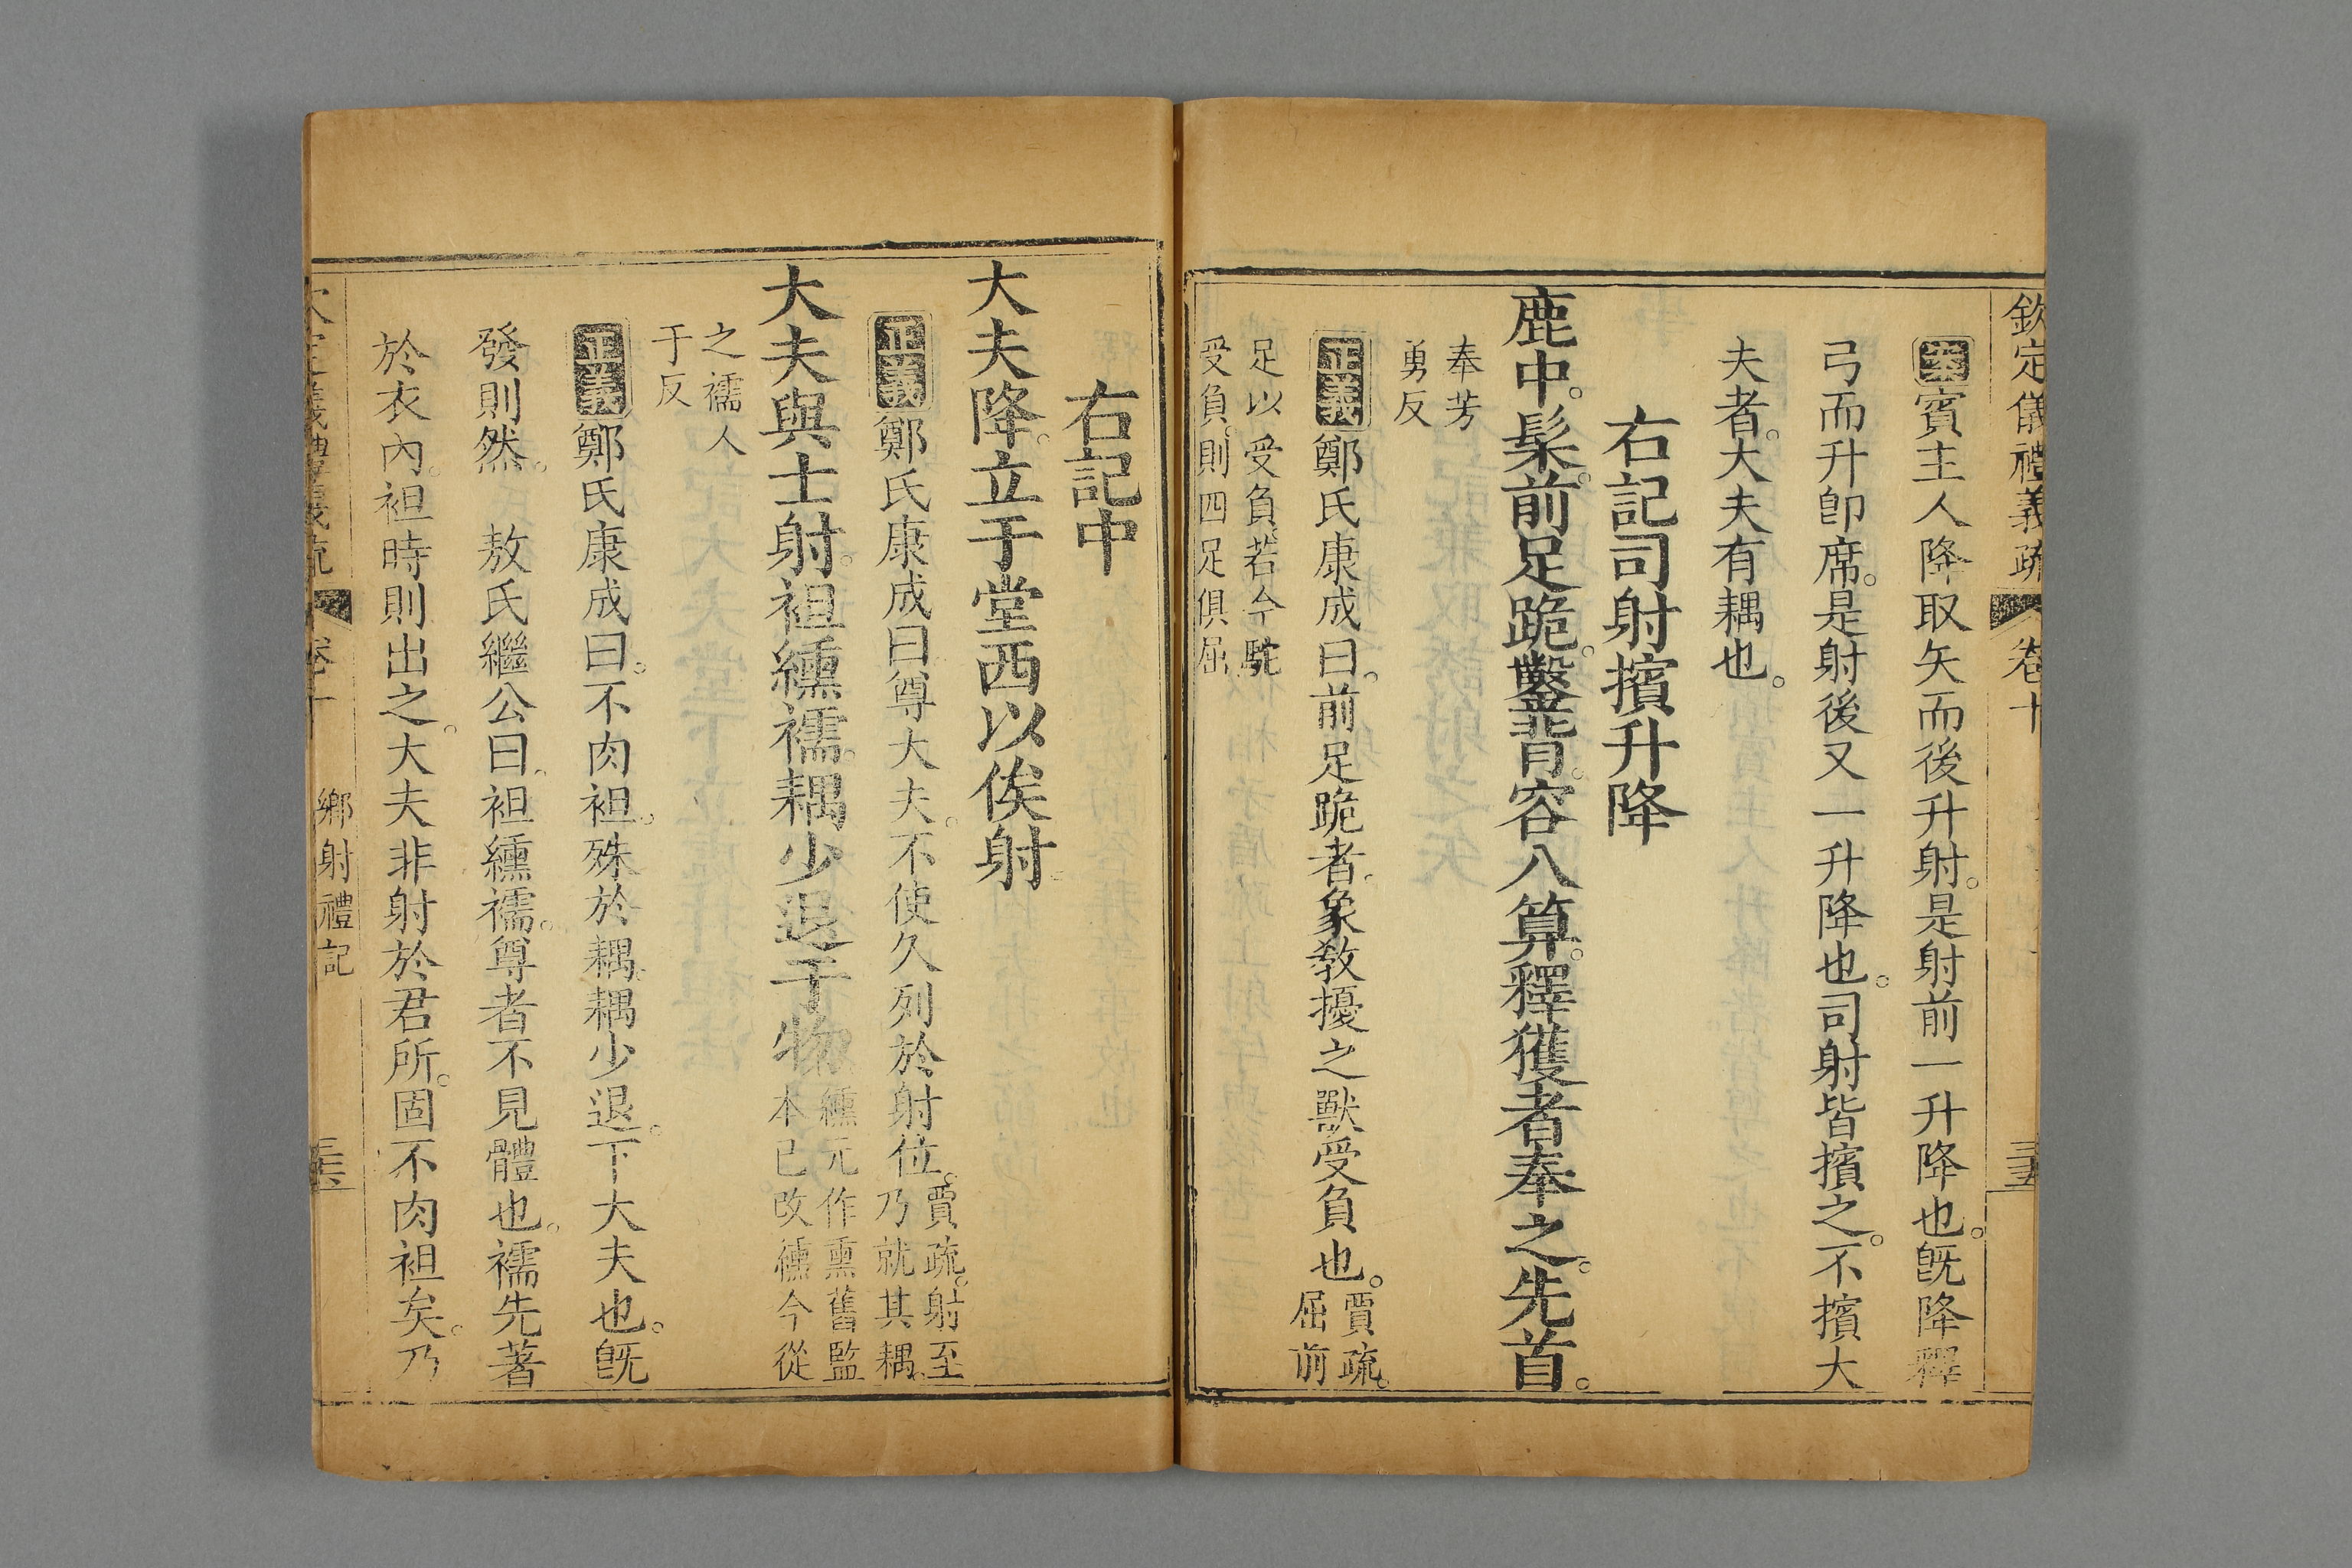 欽定儀禮義疏 卷十 三五
案賓主人降取矢而後升射。是射前一升降也。旣降釋
弓而升卽席。是射後又一升降也。司射皆擯之。不擯大
夫者。大夫有耦也。
右記司射擯升降
鹿中。髤。前足跪。鑿背。容八算。釋獲者奉之。先首。
奉芳
勇反
正義鄭氏康成曰。前足跪者。象敎擾之獸受負也。賈疏。屈前
足以受負。若今駝
受負。則四足俱屈
右記中
大夫降。立于堂西以俟射
正義鄭氏康成曰。尊大夫。不使久列於射位。賈疏。射至乃就其耦。
大夫與士射。袒纁襦。耦少退于物 纁元作熏舊監本已改纁今從
之襦人
于反
正義鄭氏康成曰。不肉袒。殊於耦。耦少退。下大夫也。旣
發則然。 敖氏繼公曰。袒纁襦。尊者不見體也。襦先著
於衣內。袒時則出之。大夫非射於君所。固不肉袒矣。乃
卷十 鄉射禮記